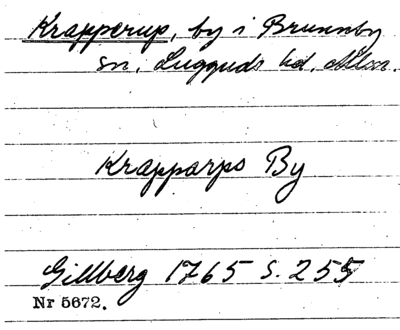 Krapperup, by i Brunnby
sn, Luggude hd, Mlm.
Krapparps By
Gillberg 1765 s. 255
Nr 5672.